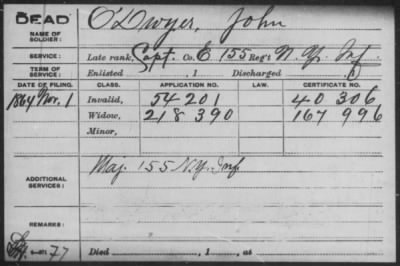 DEAD O'Dwyer, John
NAME OF SOLDIER:
SERVICE: Late rank, Capt. Co. E 155 Reg't N.Y. Inf
TERM OF SERVICE: Enlisted , 1 Discharged , 1
DATE OF FILING. CLASS. APPLICATION NO. LAW. CERTIFICATE NO.
1864 Nov. 1 Invalid, 54 201 40 306
Widow, 218 390 167 996
Minor,
ADDITIONAL SERVICES: Maj. 155 N.Y. Inf.
REMARKS:
77 Died , 1 , at